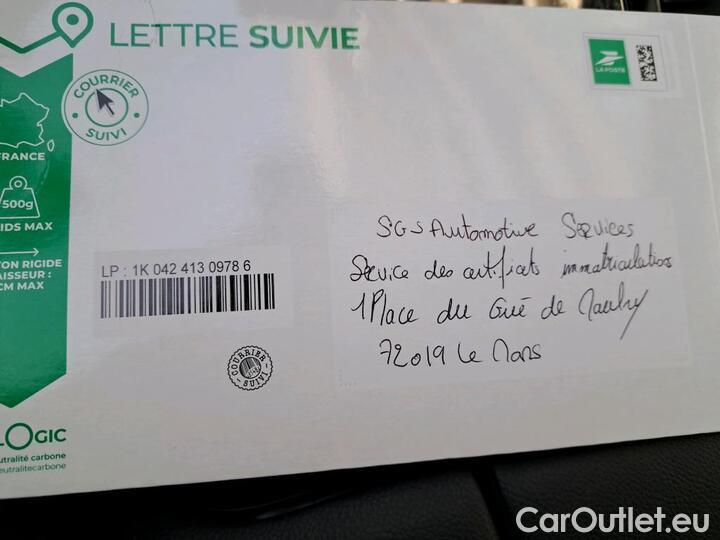 LETTRE SUIVIE
LA POSTE
COURRIER SUIVI
FRANCE
500g
IDS MAX
TON RIGIDE
AISSEUR :
CM MAX
LP : 1K 042 413 0978 6
COURRIER SUIVI
SGS Automotive Services
Service des certificats immatriculations
1 Place du Gué de Maulny
72019 Le Mans
LOGIC
utralité carbone
neutralitecarbone
CarOutlet.eu